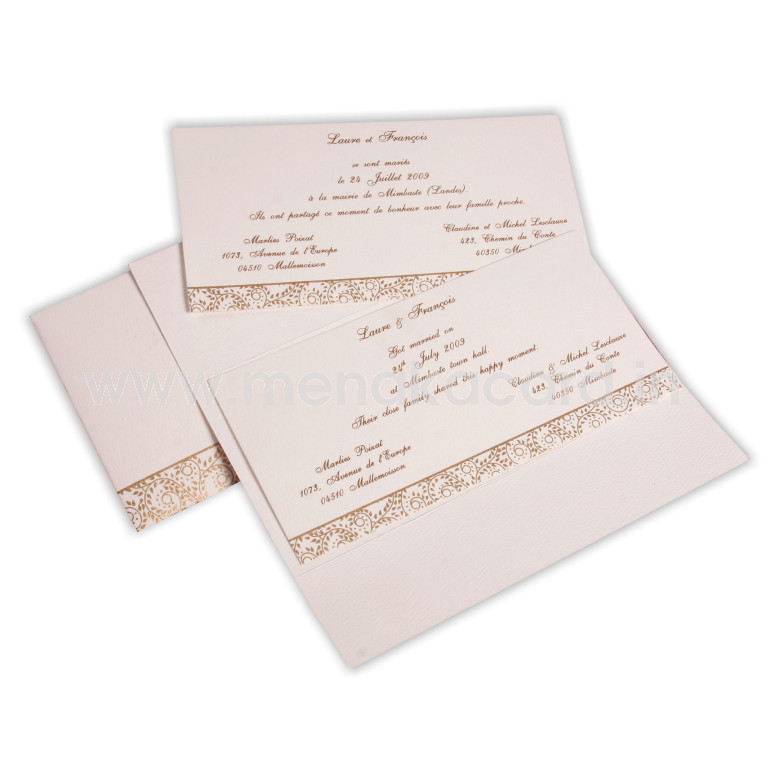 Laure et François
se sont mariés
le 24 Juillet 2009
à la mairie de Mimbaste (Landes).
Ils ont partagé ce moment de bonheur avec leur famille proche.
Marlies Poizat
1073, Avenue de l'Europe
04510 Mallemoisson
Claudine et Michel Lesclauze
423, Chemin du Conte
40350
Laure & François
Got married on
24th July 2009
at Mimbaste town hall.
Their close family shared this happy moment.
Marlies Poizat
1073, Avenue de l'Europe
04510 Mallemoisson
Claudine & Michel Lesclauze
423, Chemin du Conte
40350 Mimbaste
www.menakacard.in